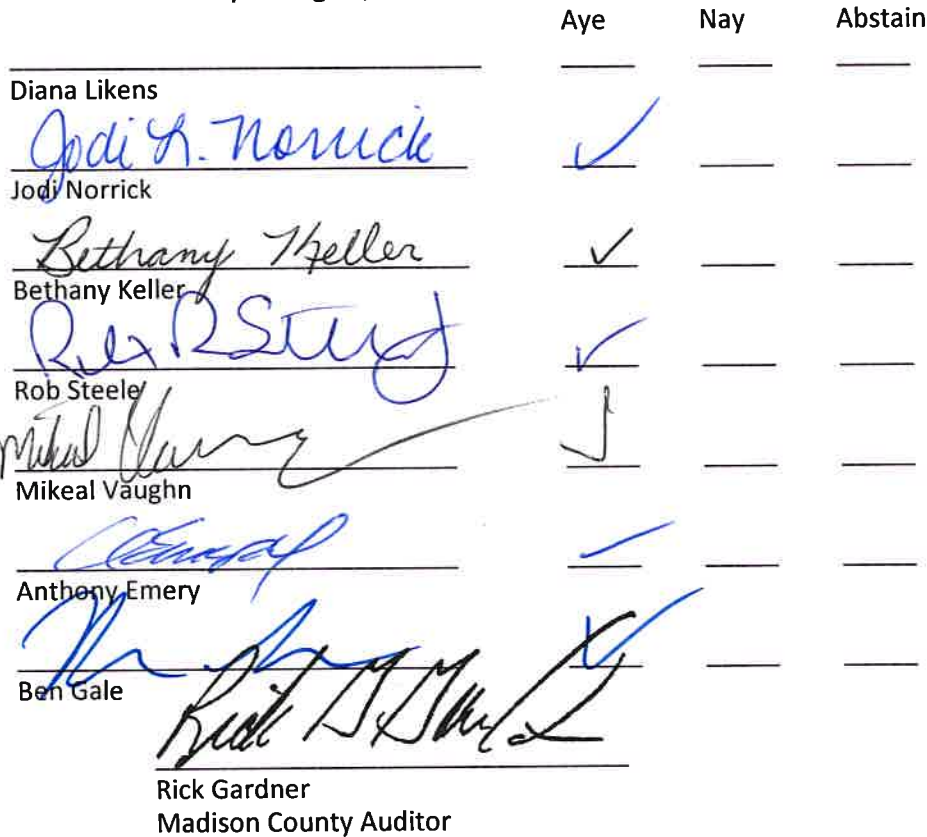 Aye Nay Abstain
Diana Likens
Jodi L. Norrick ✓
Jodi Norrick
Bethany Keller ✓
Bethany Keller
✓
Rob Steele
Mikeal Vaughn ✓
Mikeal Vaughn
✓
Anthony Emery
✓
Ben Gale
Rick Gardner
Madison County Auditor